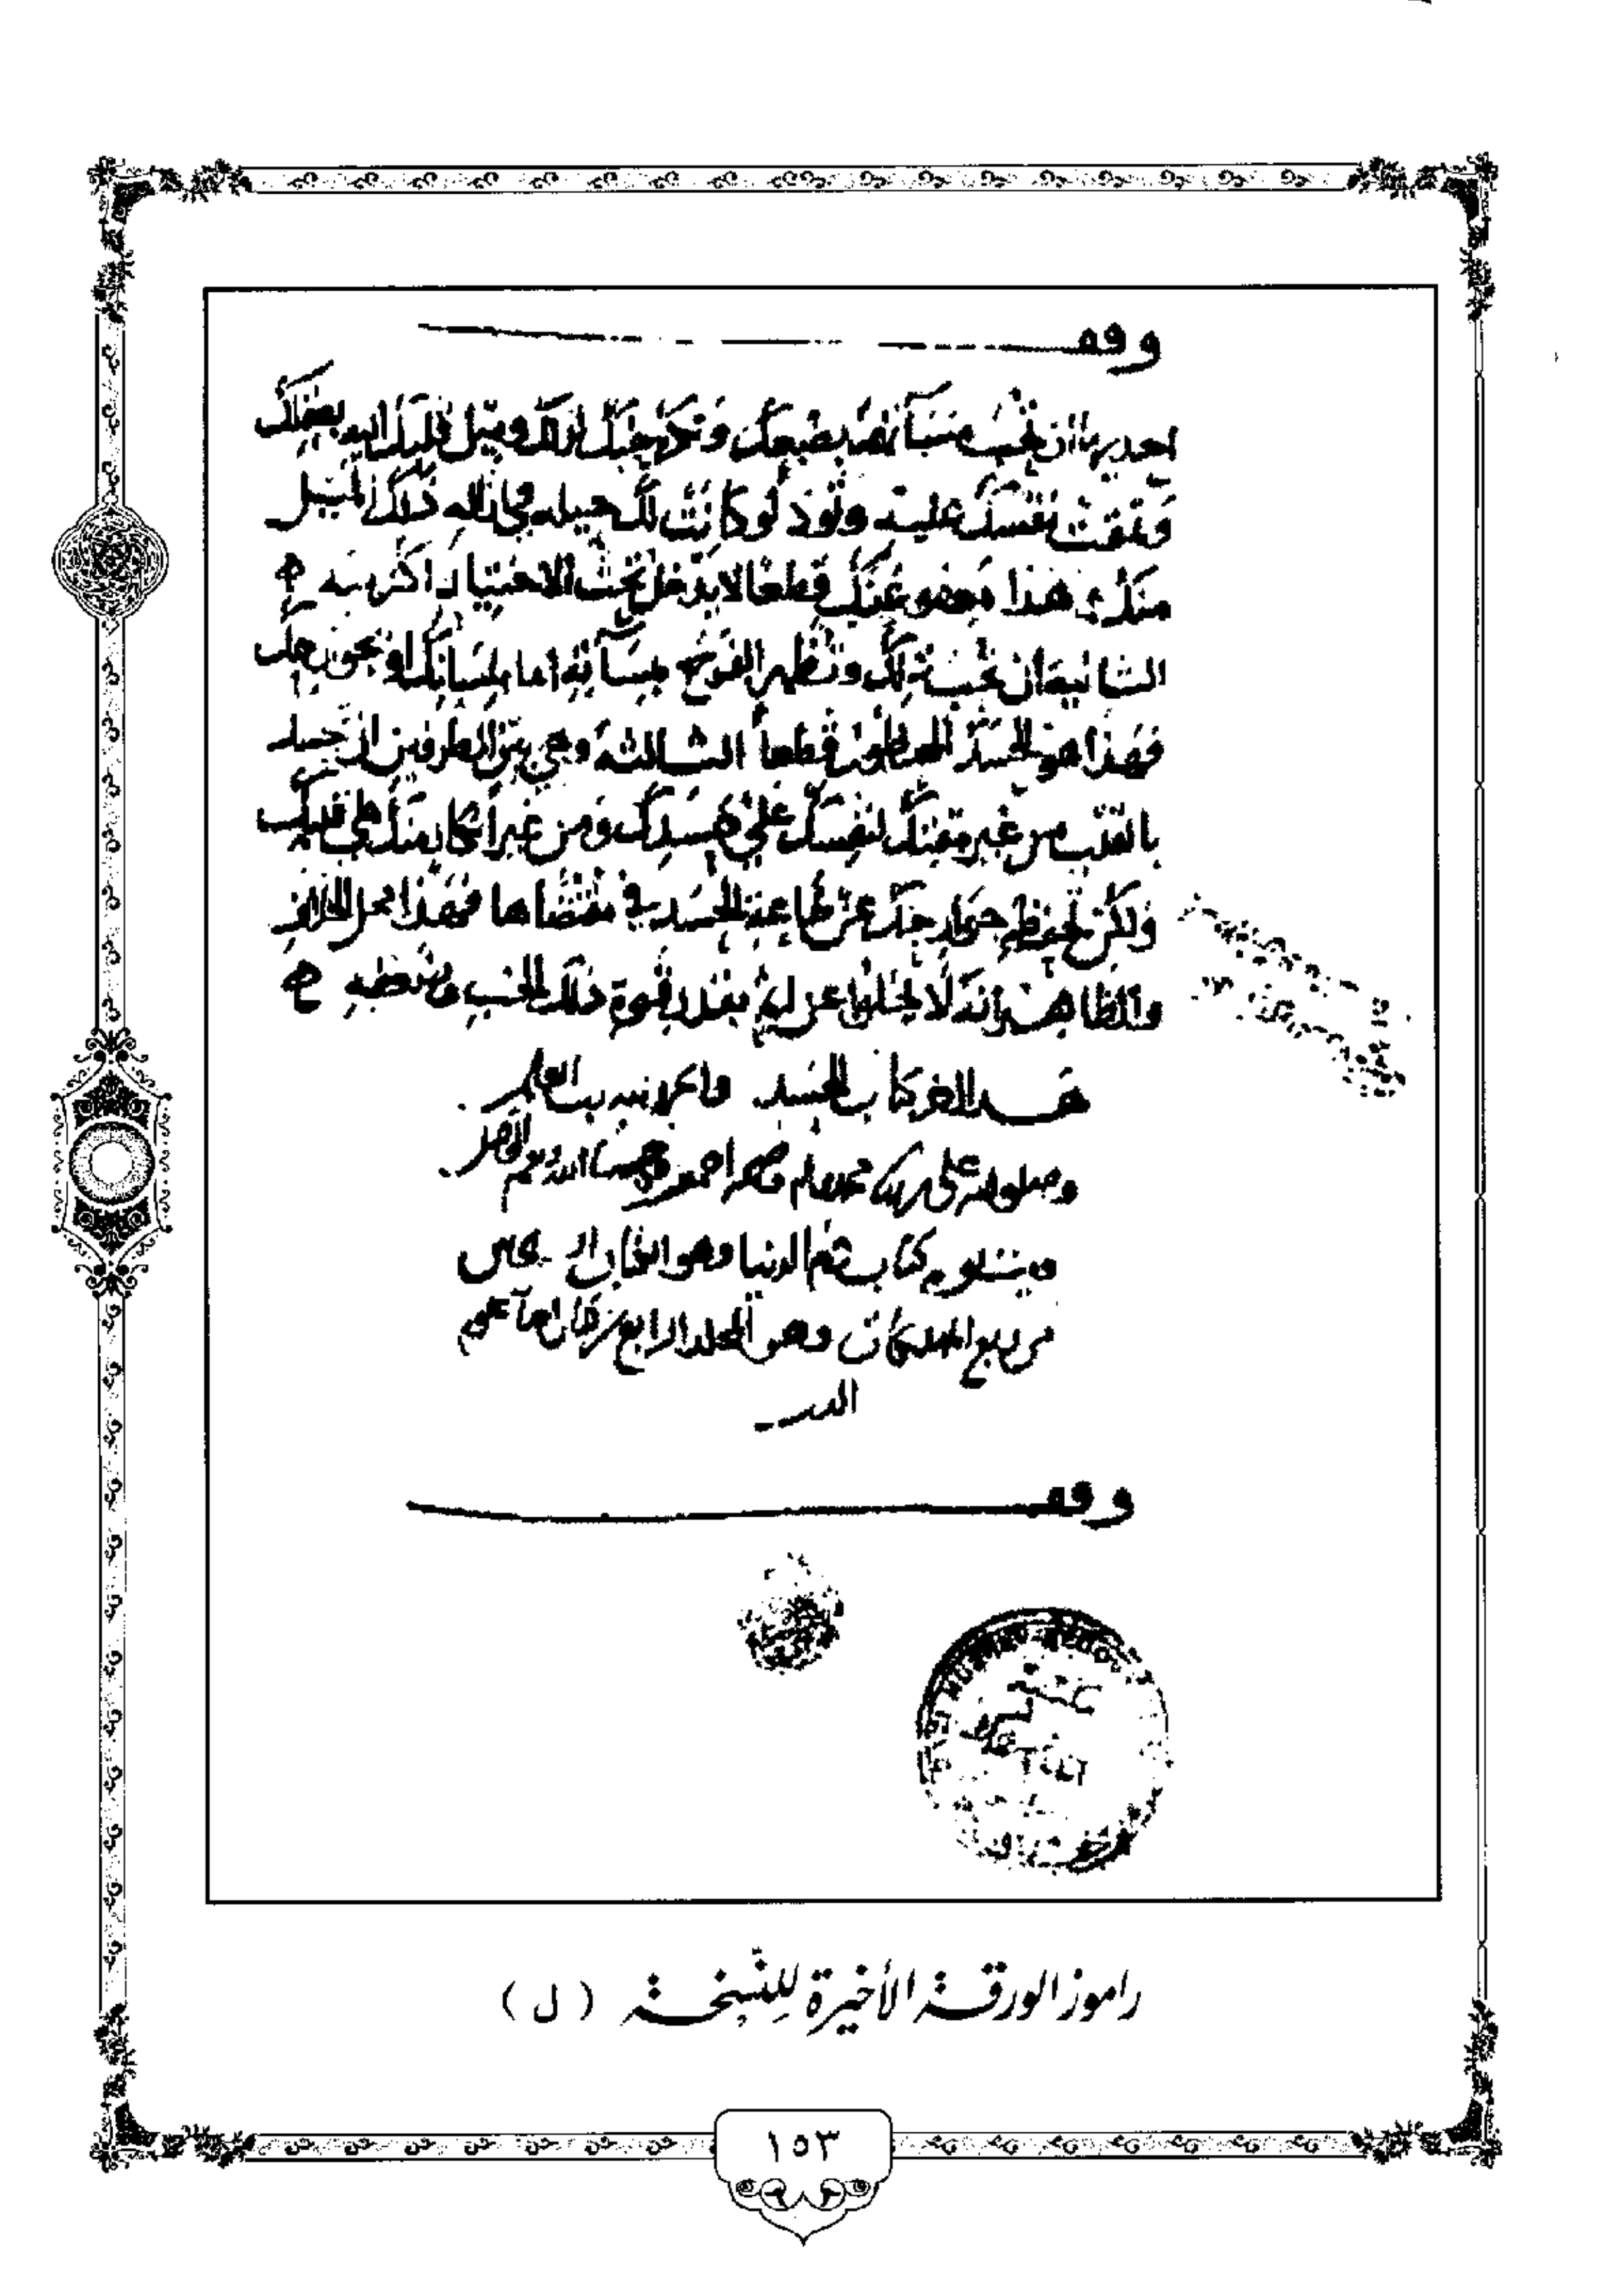 وقف
احديها ان تحب مساءتهم بطبعك وتكره حبك لذلك وميل قلبك اليه بعقلك
وتمقت نفسك عليه وتود لو كانت لك حيلة في ازالة ذلك الميل
منك وهذا معفو عنك قطعا لانه لا يدخل تحت الاختيار اكثر منه
الثانية ان تحب ذلك وتظهر الفرح بمساءته اما بلسانك او بجوارحك
فهذا هو الحسد المحظور قطعا الثالثة وهي بين الطرفين ان تحسد
بالقلب من غير مقتك لنفسك على حسدك ومن غير انكار منك على قلبك
ولكن تحفظ جوارحك عن طاعة الحسد في مقتضاها فهذا محل الخلاف
والظاهر انه لا يخلو عن اثم بقدر قوة ذلك الحب وضعفه
هذا اخر كتاب الحسد والحمد لله رب العالمين
وصلواته على محمد واله وصحبه اجمعين وحسبنا الله ونعم الوكيل
ويتلوه كتاب ذم الدنيا وهو الكتاب
من ربع المهلكات وهو المجلد الرابع من كتاب احيا علوم
الدين
وقف
راموز الورقة الأخيرة للنسخة ( ل )
١٥٣